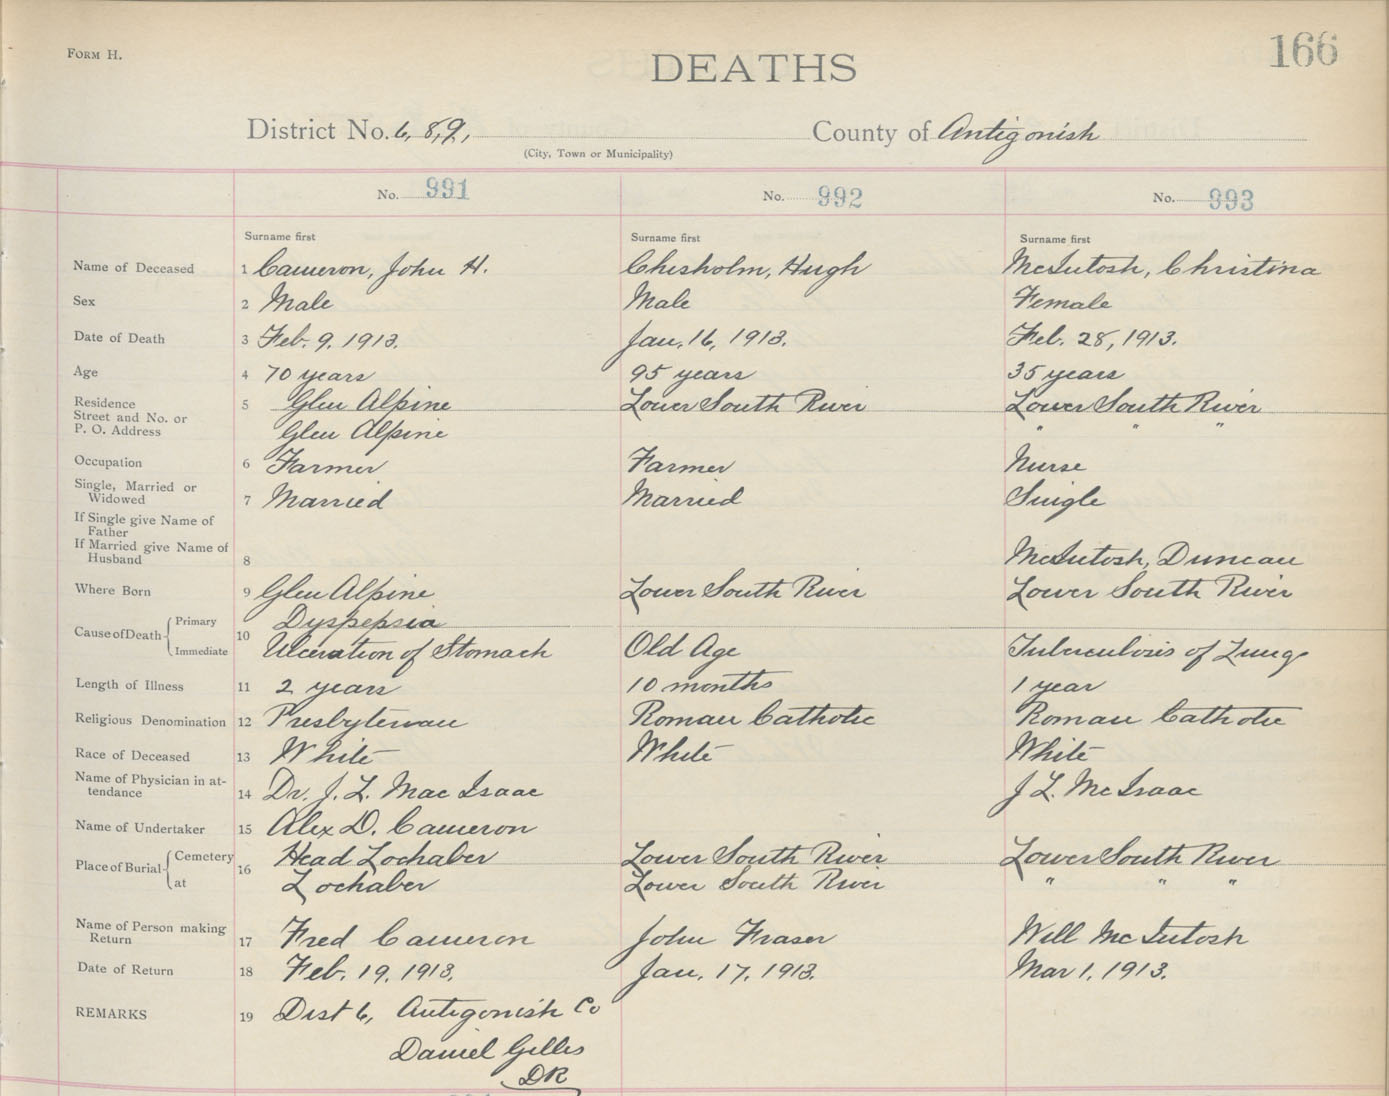 FORM H.
166
DEATHS
District No. 6, 8, 9,
County of Antigonish
(City, Town or Municipality)
No. 991 No. 992 No. 993
Surname first Surname first Surname first
Name of Deceased 1 Cameron, John H. Chisholm, Hugh McIntosh, Christina
Sex 2 Male Male Female
Date of Death 3 Feb. 9. 1913. Jan. 16, 1913. Feb. 28, 1913.
Age 4 70 years 95 years 35 years
Residence 5 Glen Alpine Lower South River Lower South River
Street and No. or
P. O. Address Glen Alpine " " "
Occupation 6 Farmer Farmer Nurse
Single, Married or
Widowed 7 Married Married Single
If Single give Name of
Father
If Married give Name of
Husband 8 McIntosh, Duncan
Where Born 9 Glen Alpine Lower South River Lower South River
Cause of Death 10 Primary Dyspepsia
Immediate Ulceration of Stomach Old Age Tuberculosis of Lung
Length of Illness 11 2 years 10 months 1 year
Religious Denomination 12 Presbyterian Roman Catholic Roman Catholic
Race of Deceased 13 White White White
Name of Physician in at-
tendance 14 Dr. J. L. Mac Isaac J L. Mc Isaac
Name of Undertaker 15 Alex D. Cameron
Place of Burial 16 Cemetery Head Lochaber Lower South River Lower South River
at Lochaber Lower South River " " "
Name of Person making
Return 17 Fred Cameron John Fraser Will McIntosh
Date of Return 18 Feb. 19. 1913. Jan. 17. 1913. Mar 1. 1913.
REMARKS 19 Dist 6, Antigonish Co
Daniel Gillis
DR